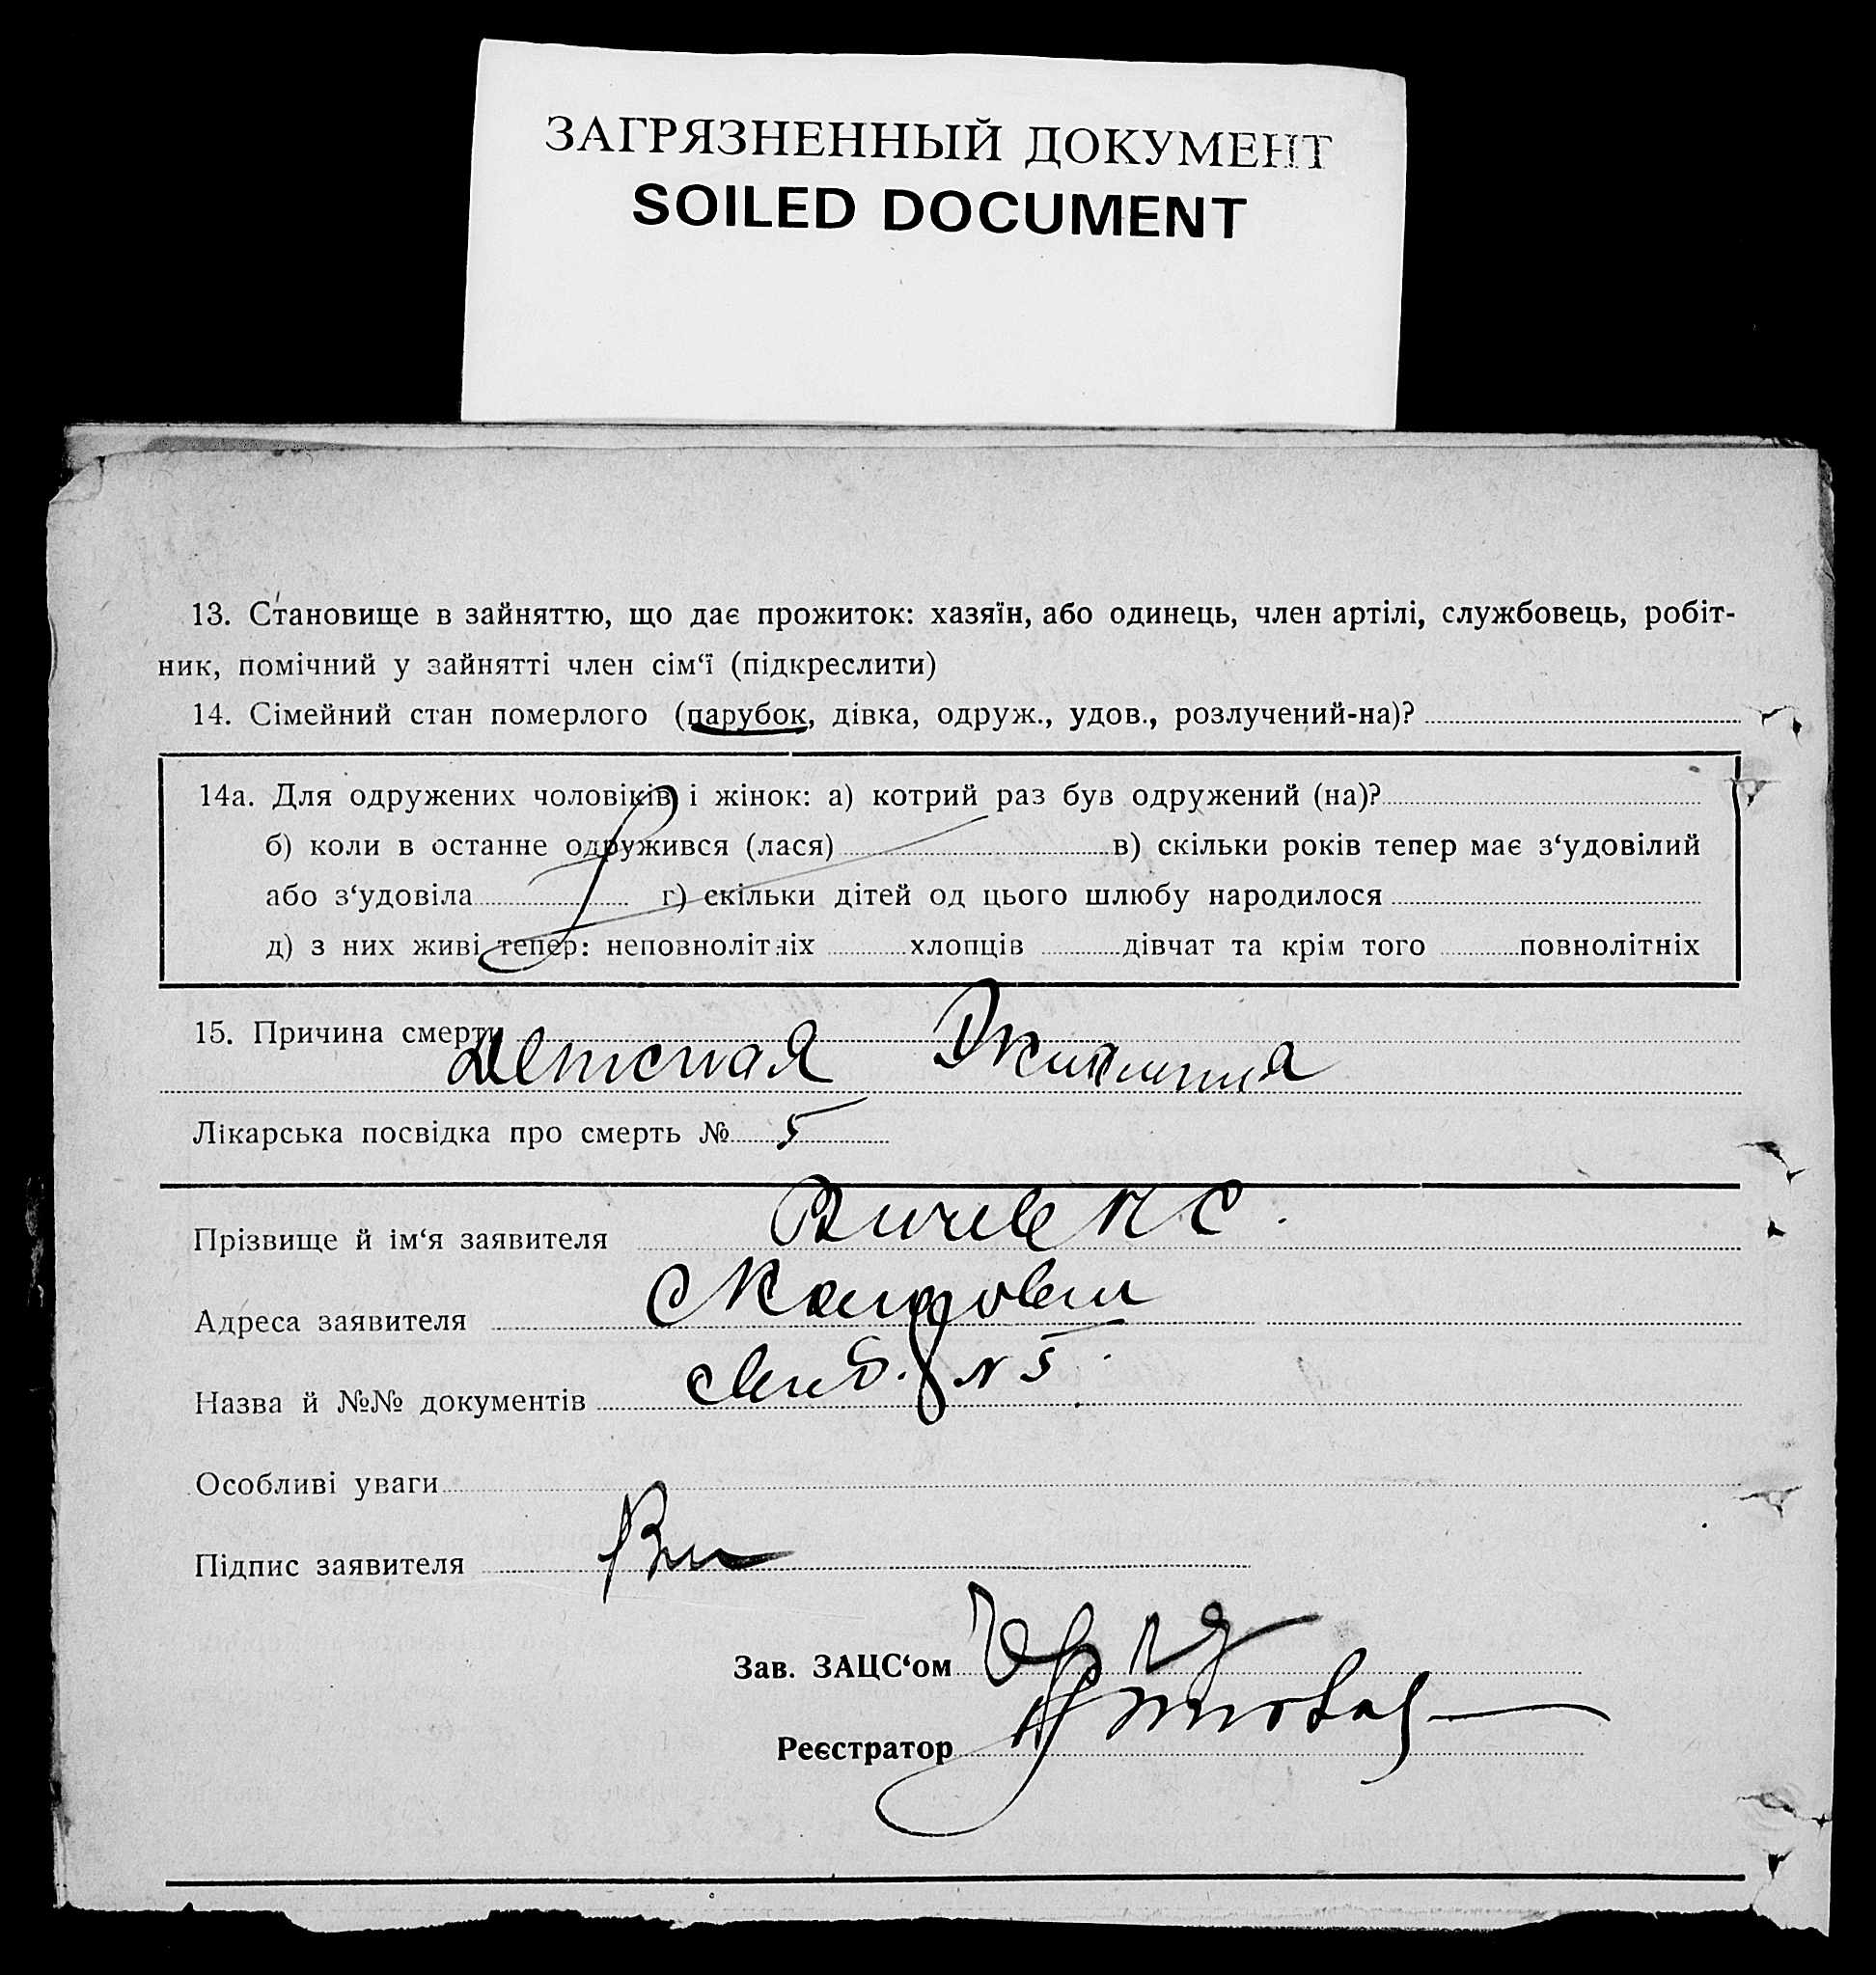 ЗАГРЯЗНЕННЫЙ ДОКУМЕНТ
SOILED DOCUMENT
13. Становище в зайняттю, що дає прожиток: хазяїн, або одинець, член артілі, службовець, робіт-
ник, помічний у зайнятті член сім‘ї (підкреслити)
14. Сімейний стан померлого (парубок, дівка, одруж., удов., розлучений-на)?
14а. Для одружених чоловіків і жінок: а) котрий раз був одружений (на)?
б) коли в останне одружився (лася) в) скільки років тепер має з‘удовілий
або з‘удовіла г) скільки дітей од цього шлюбу народилося
д) з них живі тепер: неповнолітніх хлопців дівчат та крім того повнолітніх
15. Причина смерти
Детская
Лікарська посвідка про смерть № 5
Прізвище й ім‘я заявителя
Адреса заявителя
Назва й №№ документів N 5
Особливі уваги
Підпис заявителя
Зав. ЗАЦС‘ом
Реєстратор